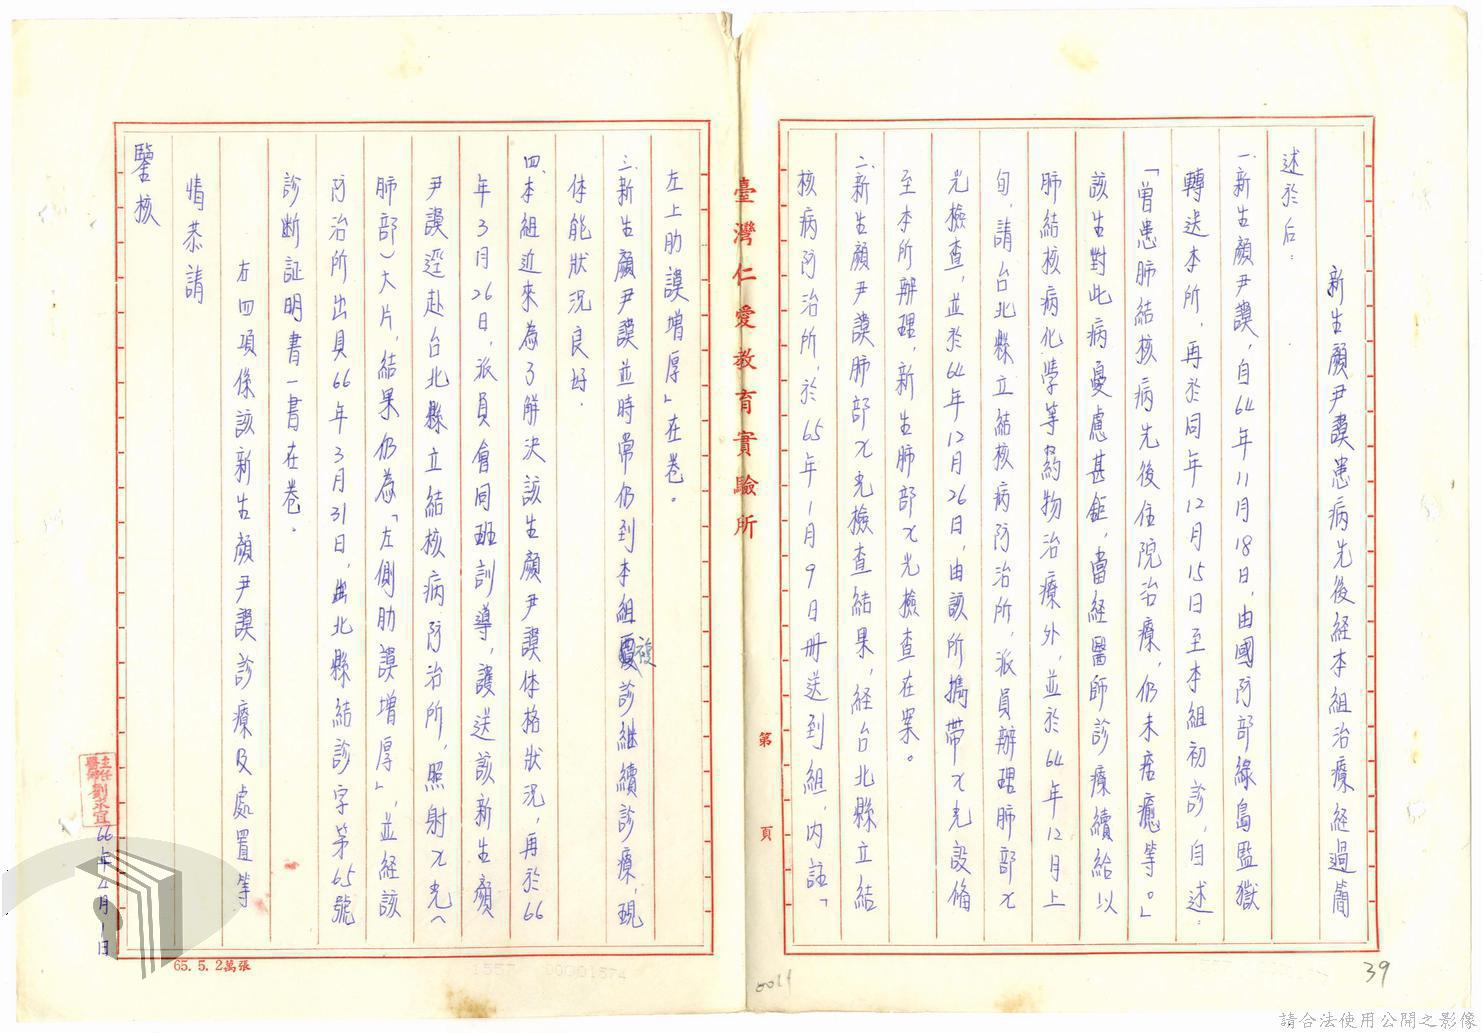 新生顏尹謨患病先後経本組治療経過簡
述於后：
一、新生顏尹謨，自64年11月18日，由國防部綠島監獄
轉送本所，再於同年12月15日至本組初診，自述：
「曾患肺結核病先後住院治療，仍未痊癒等。」
該生對此病憂慮甚鉅，當経醫師診療續給以
肺結核病化學等葯物治療外，並於64年12月上
旬，請台北縣立結核病防治所，派員辦理肺部X
光檢查，並於64年12月26日，由該所携帶X光設備
至本所辦理，新生肺部X光檢查在案。
二、新生顏尹謨肺部X光檢查結果，経台北縣立結
核病防治所，於65年1月9日册送到組，内註「
臺灣仁愛教育實驗所
第 頁
左上肋膜增厚」在卷。
三、新生顏尹謨並時常仍到本組複診継續診療，現
体能狀況良好．
四、本組近來為了解決該生顏尹謨体格狀況，再於66
年3月26日，派員會同班訓導，護送該新生顏
尹謨逕赴台北縣立結核病防治所，照射X光（
肺部）大片，結果仍為「左側肋膜增厚」，並経該
防治所出具66年3月31日，北縣結診字第65號
診断証明書一書在卷。
右四項係該新生顏尹謨診療及處置等
情恭請
鑒核
主任醫師劉永宜
66年4月1日
65.5.2萬張
1557 00001574
0014
39
請合法使用公開之影像